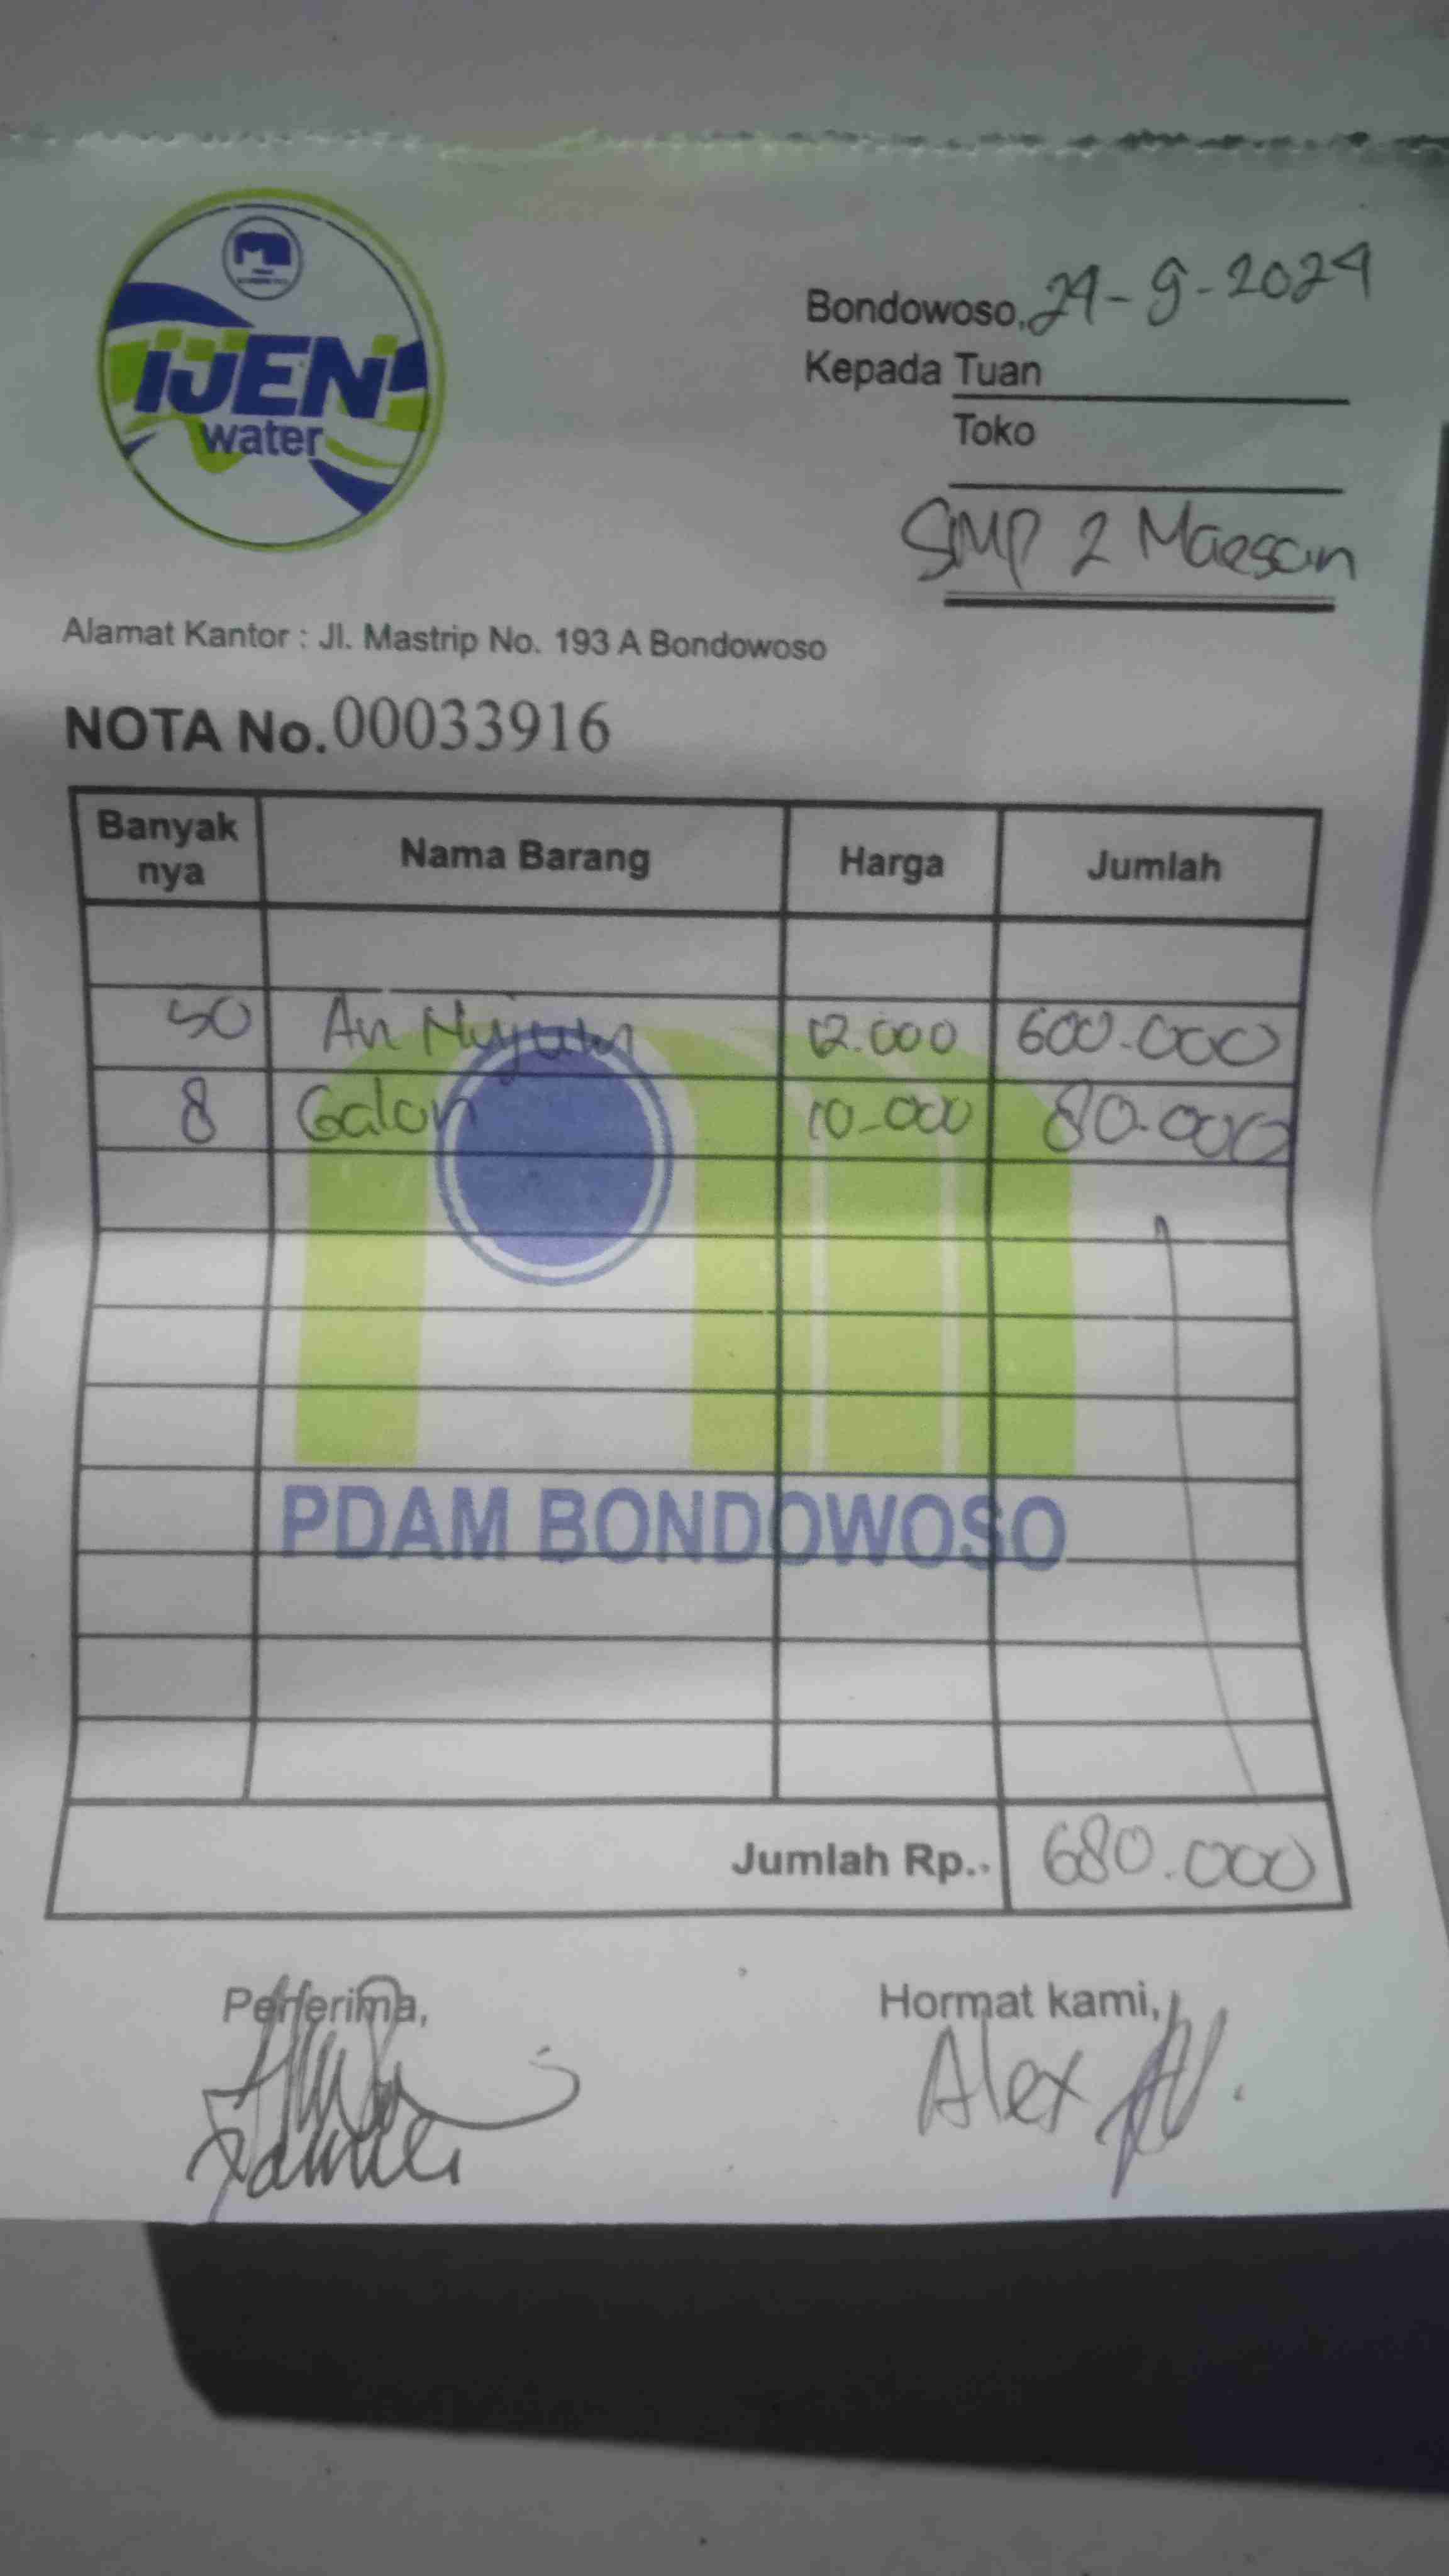 IJEN
water
Bondowoso, 24-9-2024
Kepada Tuan
Toko
SMP 2 Maesan
Alamat Kantor : Jl. Mastrip No. 193 A Bondowoso
NOTA No. 00033916
Banyak nya Nama Barang Harga Jumlah
50 An Nujum 12.000 600.000
8 Galon 10.000 80.000
PDAM BONDOWOSO
Jumlah Rp.. 680.000
Penerima, Hormat kami,
Alex